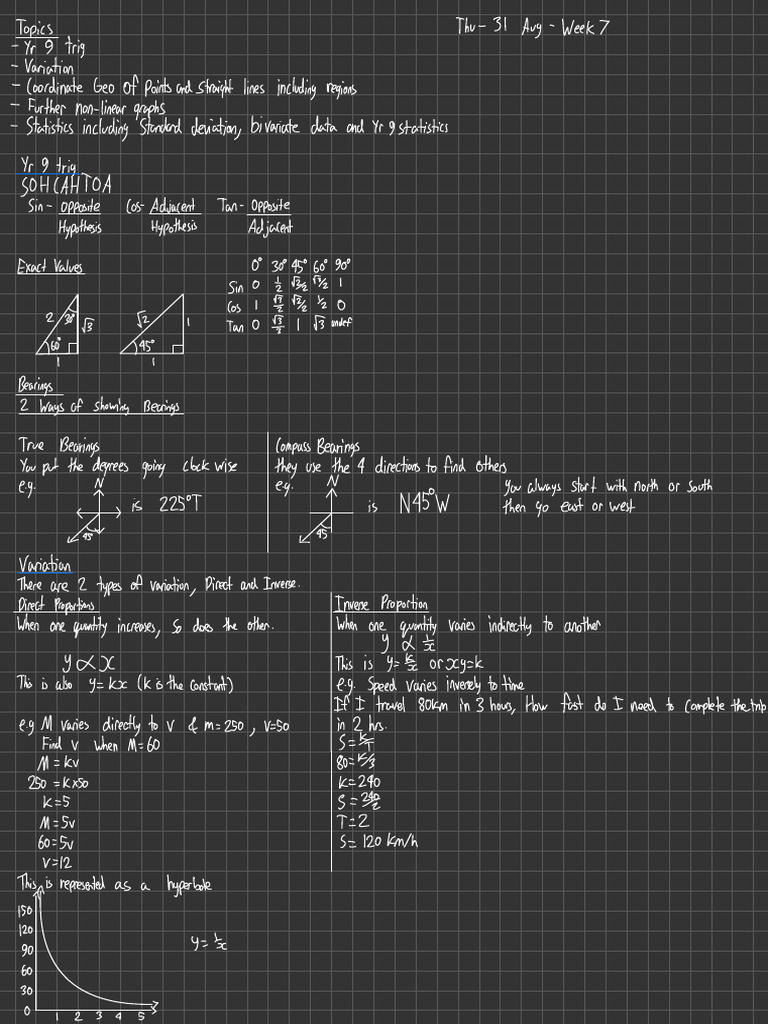 Topics
Thu - 31 Aug - Week 7
- Yr 9 trig
- Variation
- Coordinate Geo of Points and straight lines including regions
- Further non-linear graphs
- Statistics including Standard deviation, bivariate data and Yr 9 statistics
Yr 9 trig
SOHCAHTOA
Sin - Opposite/Hypothesis Cos - Adjacent/Hypothesis Tan - Opposite/Adjacent
Exact Values
0° 30° 45° 60° 90°
Sin 0 1/2 √2/2 √3/2 1
Cos 1 √3/2 √2/2 1/2 0
Tan 0 √3/3 1 √3 undef
2 30° √3 60° 1
√2 1 45° 1
Bearings
2 Ways of showing Bearings
True Bearings
You put the degrees going clockwise
e.g.
N
is 225°T
45°
Compass Bearings
they use the 4 directions to find others
e.g.
N
is N45°W
45°
you always start with north or south
then go east or west
Variation
There are 2 types of variation, Direct and Inverse.
Direct Proportions
When one quantity increases, So does the other.
y ∝ x
This is also y=kx (k is the constant)
e.g M varies directly to v & m=250, v=50
Find v when M=60
M=kv
250=k×50
k=5
M=5v
60=5v
v=12
Inverse Proportion
When one quantity varies indirectly to another
y ∝ 1/x
This is y=k/x or xy=k
e.g. Speed varies inversely to time
If I travel 80km in 3 hours, How fast do I need to complete the trip
in 2 hrs.
S=k/T
80=k/3
k=240
S=240/2
T=2
S=120 km/h
This is represented as a hyperbole
150
120
90
60
30
0
1 2 3 4 5
y=1/x